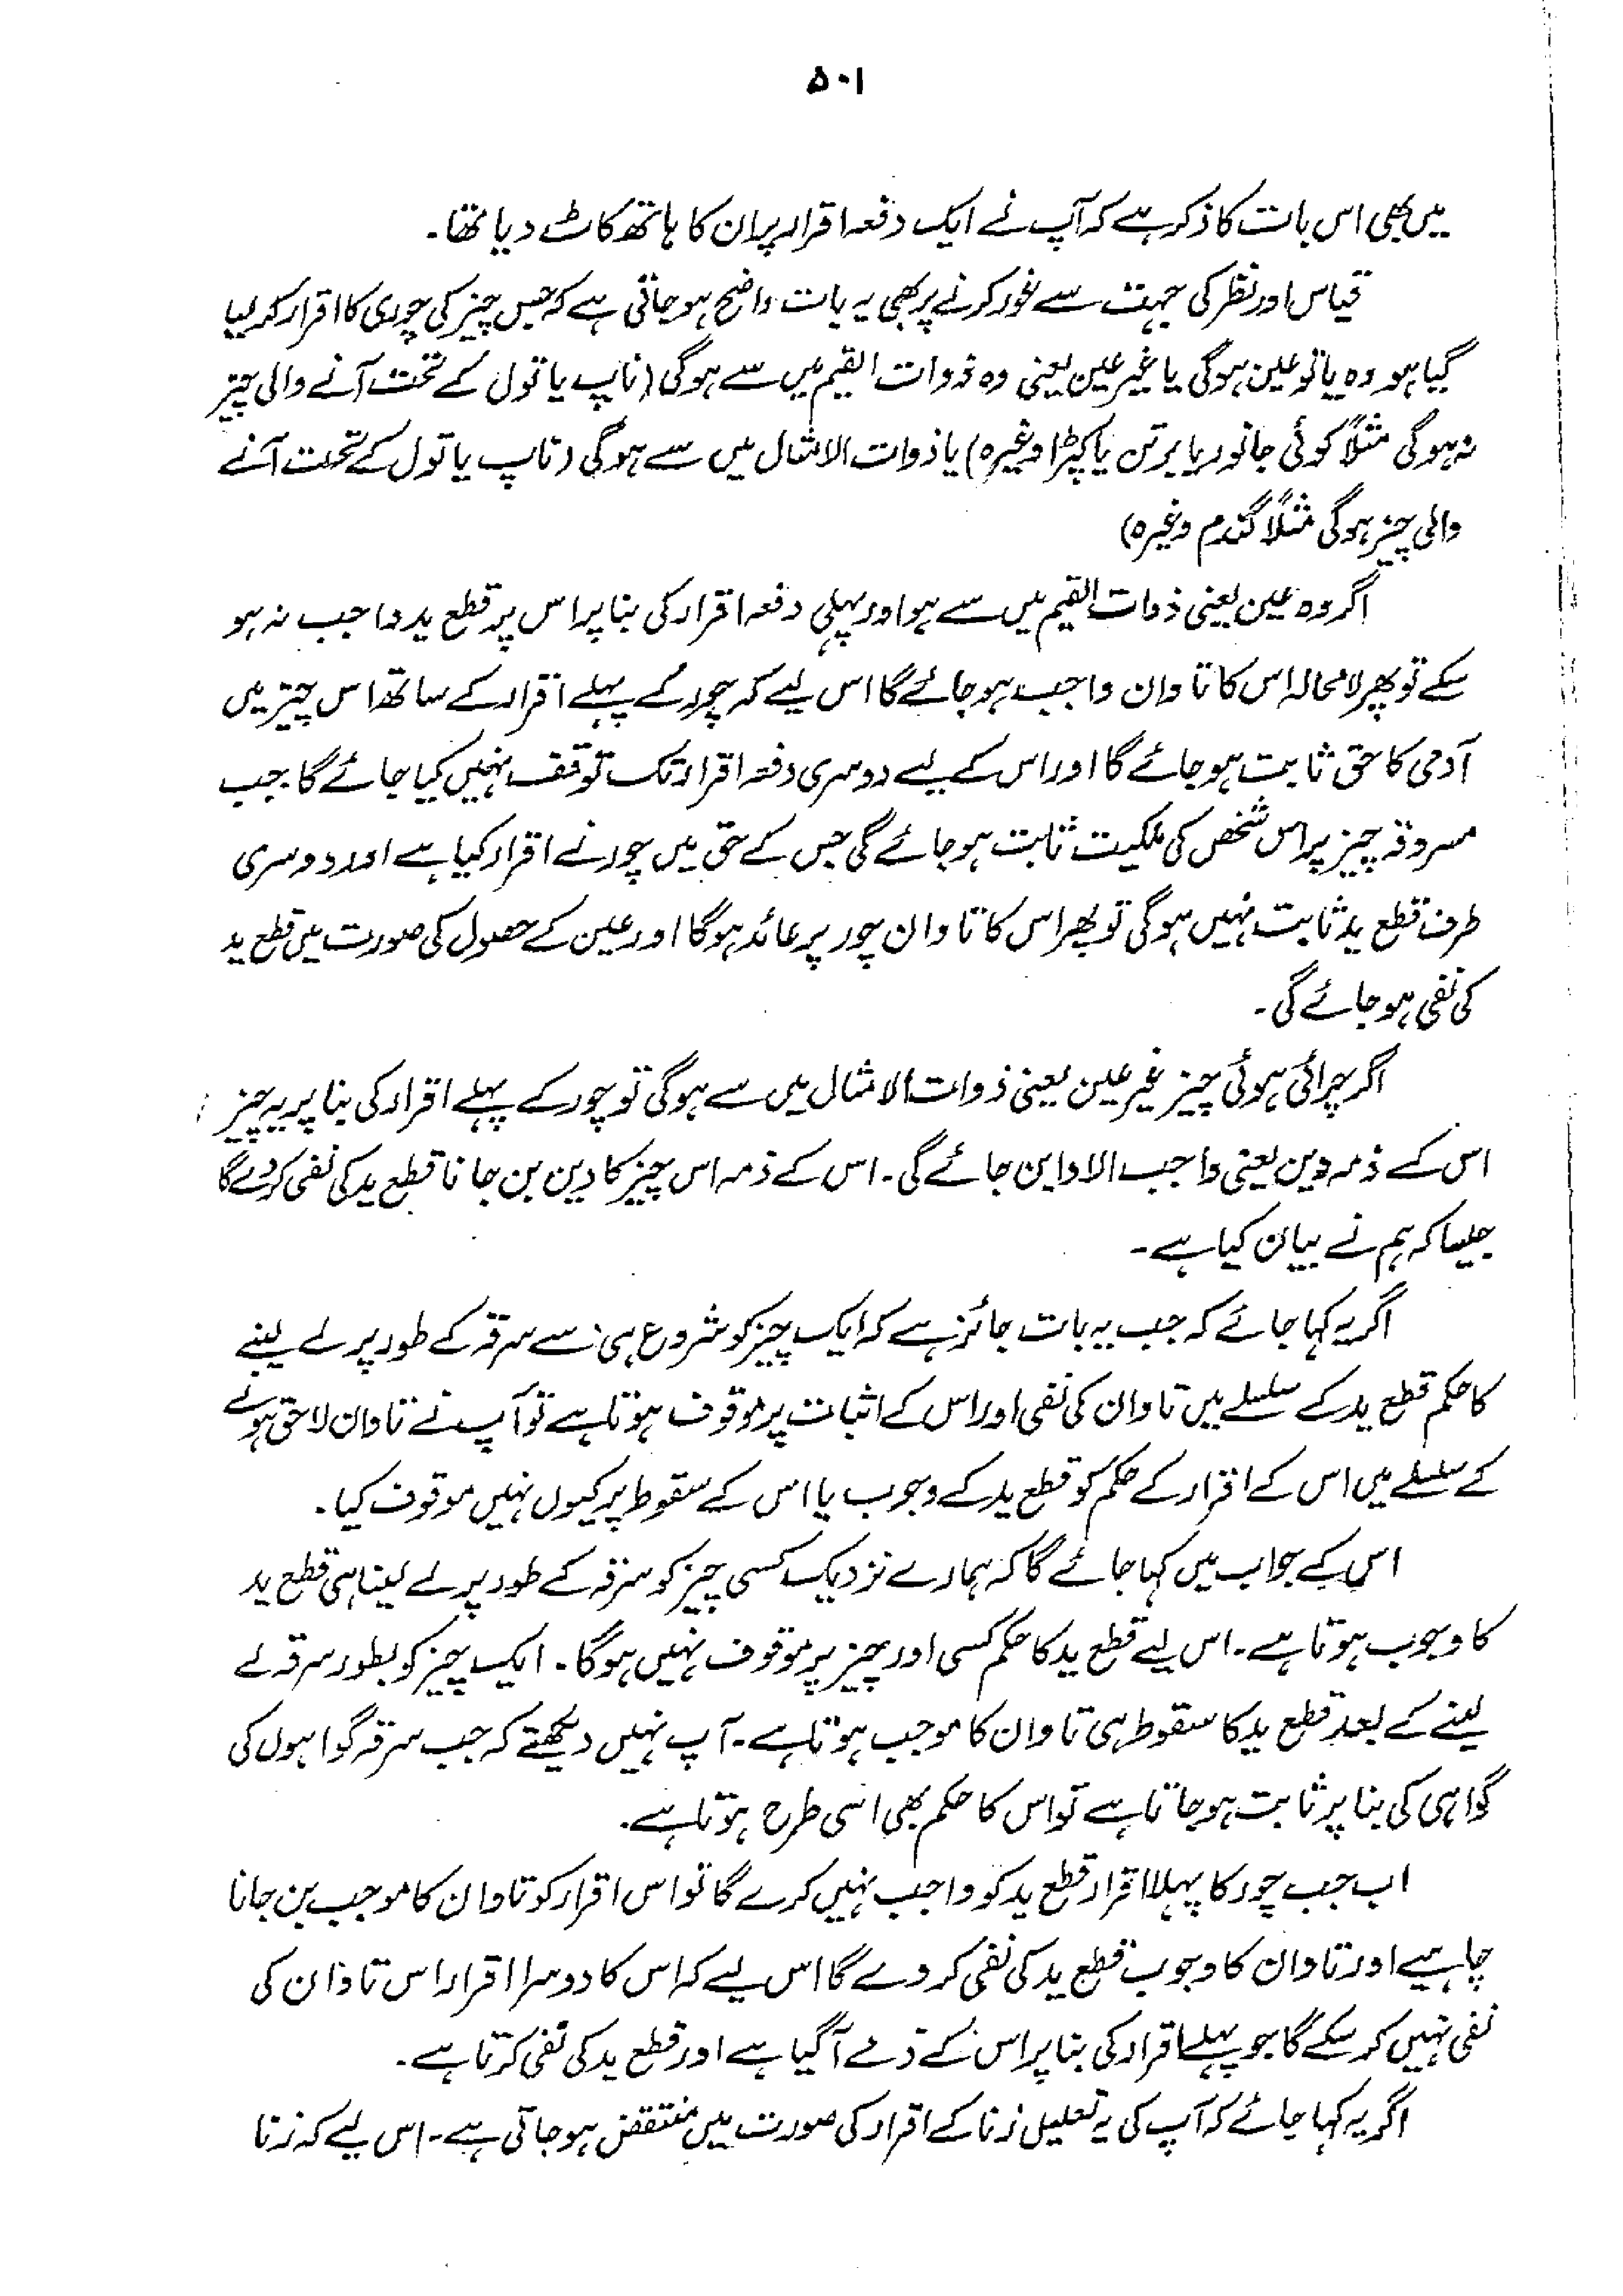 ۵۰۱
میں بھی اس بات کا ذکر ہے کہ آپ نے ایک دفعہ اقرار پر ان کا ہاتھ کاٹ دیا تھا۔
قیاس اور نظر کی جہت سے غور کرنے پر بھی یہ بات واضح ہو جاتی ہے کہ جس چیز کی چوری کا اقرار کر لیا
گیا ہو وہ یا تو عین ہوگی یا غیر عین یعنی وہ ذوات القیم میں سے ہوگی (ناپ یا تول کے تحت آنے والی چیز
نہ ہوگی مثلاً کوئی جانور یا برتن یا کپڑا وغیرہ) یا ذوات الامثال میں سے ہوگی (ناپ یا تول کے تحت آنے
والی چیز ہوگی مثلاً گندم وغیرہ)
اگر وہ عین یعنی ذوات القیم میں سے ہو اور پہلی دفعہ اقرار کی بنا پر اس پر قطع ید واجب نہ ہو
سکے تو پھر لامحالہ اس کا تاوان واجب ہو جائے گا اس لیے کہ چور کے پہلے اقرار کے ساتھ اس چیز میں
آدمی کا حق ثابت ہو جائے گا اور اس کے لیے دوسری دفعہ اقرار تک توقف نہیں کیا جائے گا۔ جب
مسروقہ چیز پر اس شخص کی ملکیت ثابت ہو جائے گی جس کے حق میں چور نے اقرار کیا ہے اور دوسری
طرف قطع ید ثابت نہیں ہوگی تو پھر اس کا تاوان چور پر عائد ہوگا اور عین کے حصول کی صورت میں قطع ید
کی نفی ہو جائے گی۔
اگر چرائی ہوئی چیز غیر عین یعنی ذوات الامثال میں سے ہوگی تو چور کے پہلے اقرار کی بنا پر یہ چیز
اس کے ذمہ دین یعنی واجب الادا بن جائے گی۔ اس کے ذمہ اس چیز کا دین بن جانا قطع ید کی نفی کر دے گا
جیسا کہ ہم نے بیان کیا ہے۔
اگر یہ کہا جائے کہ جب یہ بات جائز ہے کہ ایک چیز کو شروع ہی سے سرقہ کے طور پر لے لینے
کا حکم قطع ید کے سلسلے میں تاوان کی نفی اور اس کے اثبات پر موقوف ہوتا ہے تو آپ نے تاوان لاحق ہونے
کے سلسلے میں اس کے اقرار کے حکم کو قطع ید کے وجوب یا اس کے سقوط پر کیوں نہیں موقوف کیا۔
اس کے جواب میں کہا جائے گا کہ ہمارے نزدیک کسی چیز کو سرقہ کے طور پر لے لینا ہی قطع ید
کا وجوب ہوتا ہے۔ اس لیے قطع ید کا حکم کسی اور چیز پر موقوف نہیں ہوگا۔ ایک چیز کو بطور سرقہ لے
لینے کے بعد قطع ید کا سقوط ہی تاوان کا موجب ہوتا ہے۔ آپ نہیں دیکھتے کہ جب سرقہ گواہوں کی
گواہی کی بنا پر ثابت ہو جاتا ہے تو اس کا حکم بھی اسی طرح ہوتا ہے۔
اب جب چور کا پہلا اقرار قطع ید کو واجب نہیں کرے گا تو اس اقرار کو تاوان کا موجب بن جانا
چاہیے اور تاوان کا وجوب قطع ید کی نفی کر دے گا اس لیے کہ اس کا دوسرا اقرار اس تاوان کی
نفی نہیں کر سکے گا جو پہلے اقرار کی بنا پر اس کے ذمے آگیا ہے اور قطع ید کی نفی کرتا ہے۔
اگر یہ کہا جائے کہ آپ کی یہ تعلیل زنا کے اقرار کی صورت میں منتقض ہو جاتی ہے۔ اس لیے کہ زنا